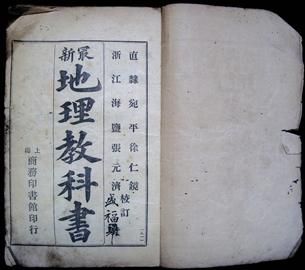 直隸宛平徐仁鏡
浙江海鹽張元濟
校訂
最新
地理教科書
上海
商務印書館印行